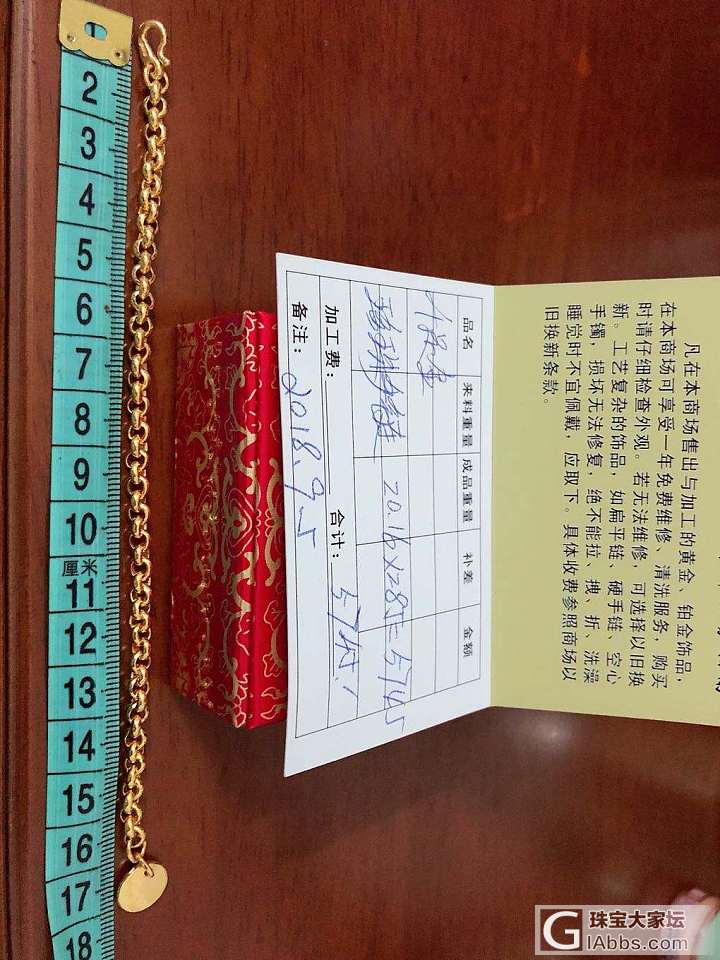 2
3
4
5
6
7
8
9
10
厘米
11
12
13
14
15
16
17
18
品名 来料重量 成品重量 补差 金额
20.16×285=5745
加工费: 合计: 5745
备注: 2018.9.5
凡在本商场售出与加工的黄金、铂金饰品,
在本商场可享受一年免费维修、清洗服务,购买
时请仔细检查外观。若无法维修,可选择以旧换
新。工艺复杂的饰品,如扁平链、硬手链、空心
手镯,损坏无法修复,绝不能拉、拽、折、洗澡
睡觉时不宜佩戴,应取下。具体收费参照商场以
旧换新条款。
G 珠宝大家坛
IAbbs.com